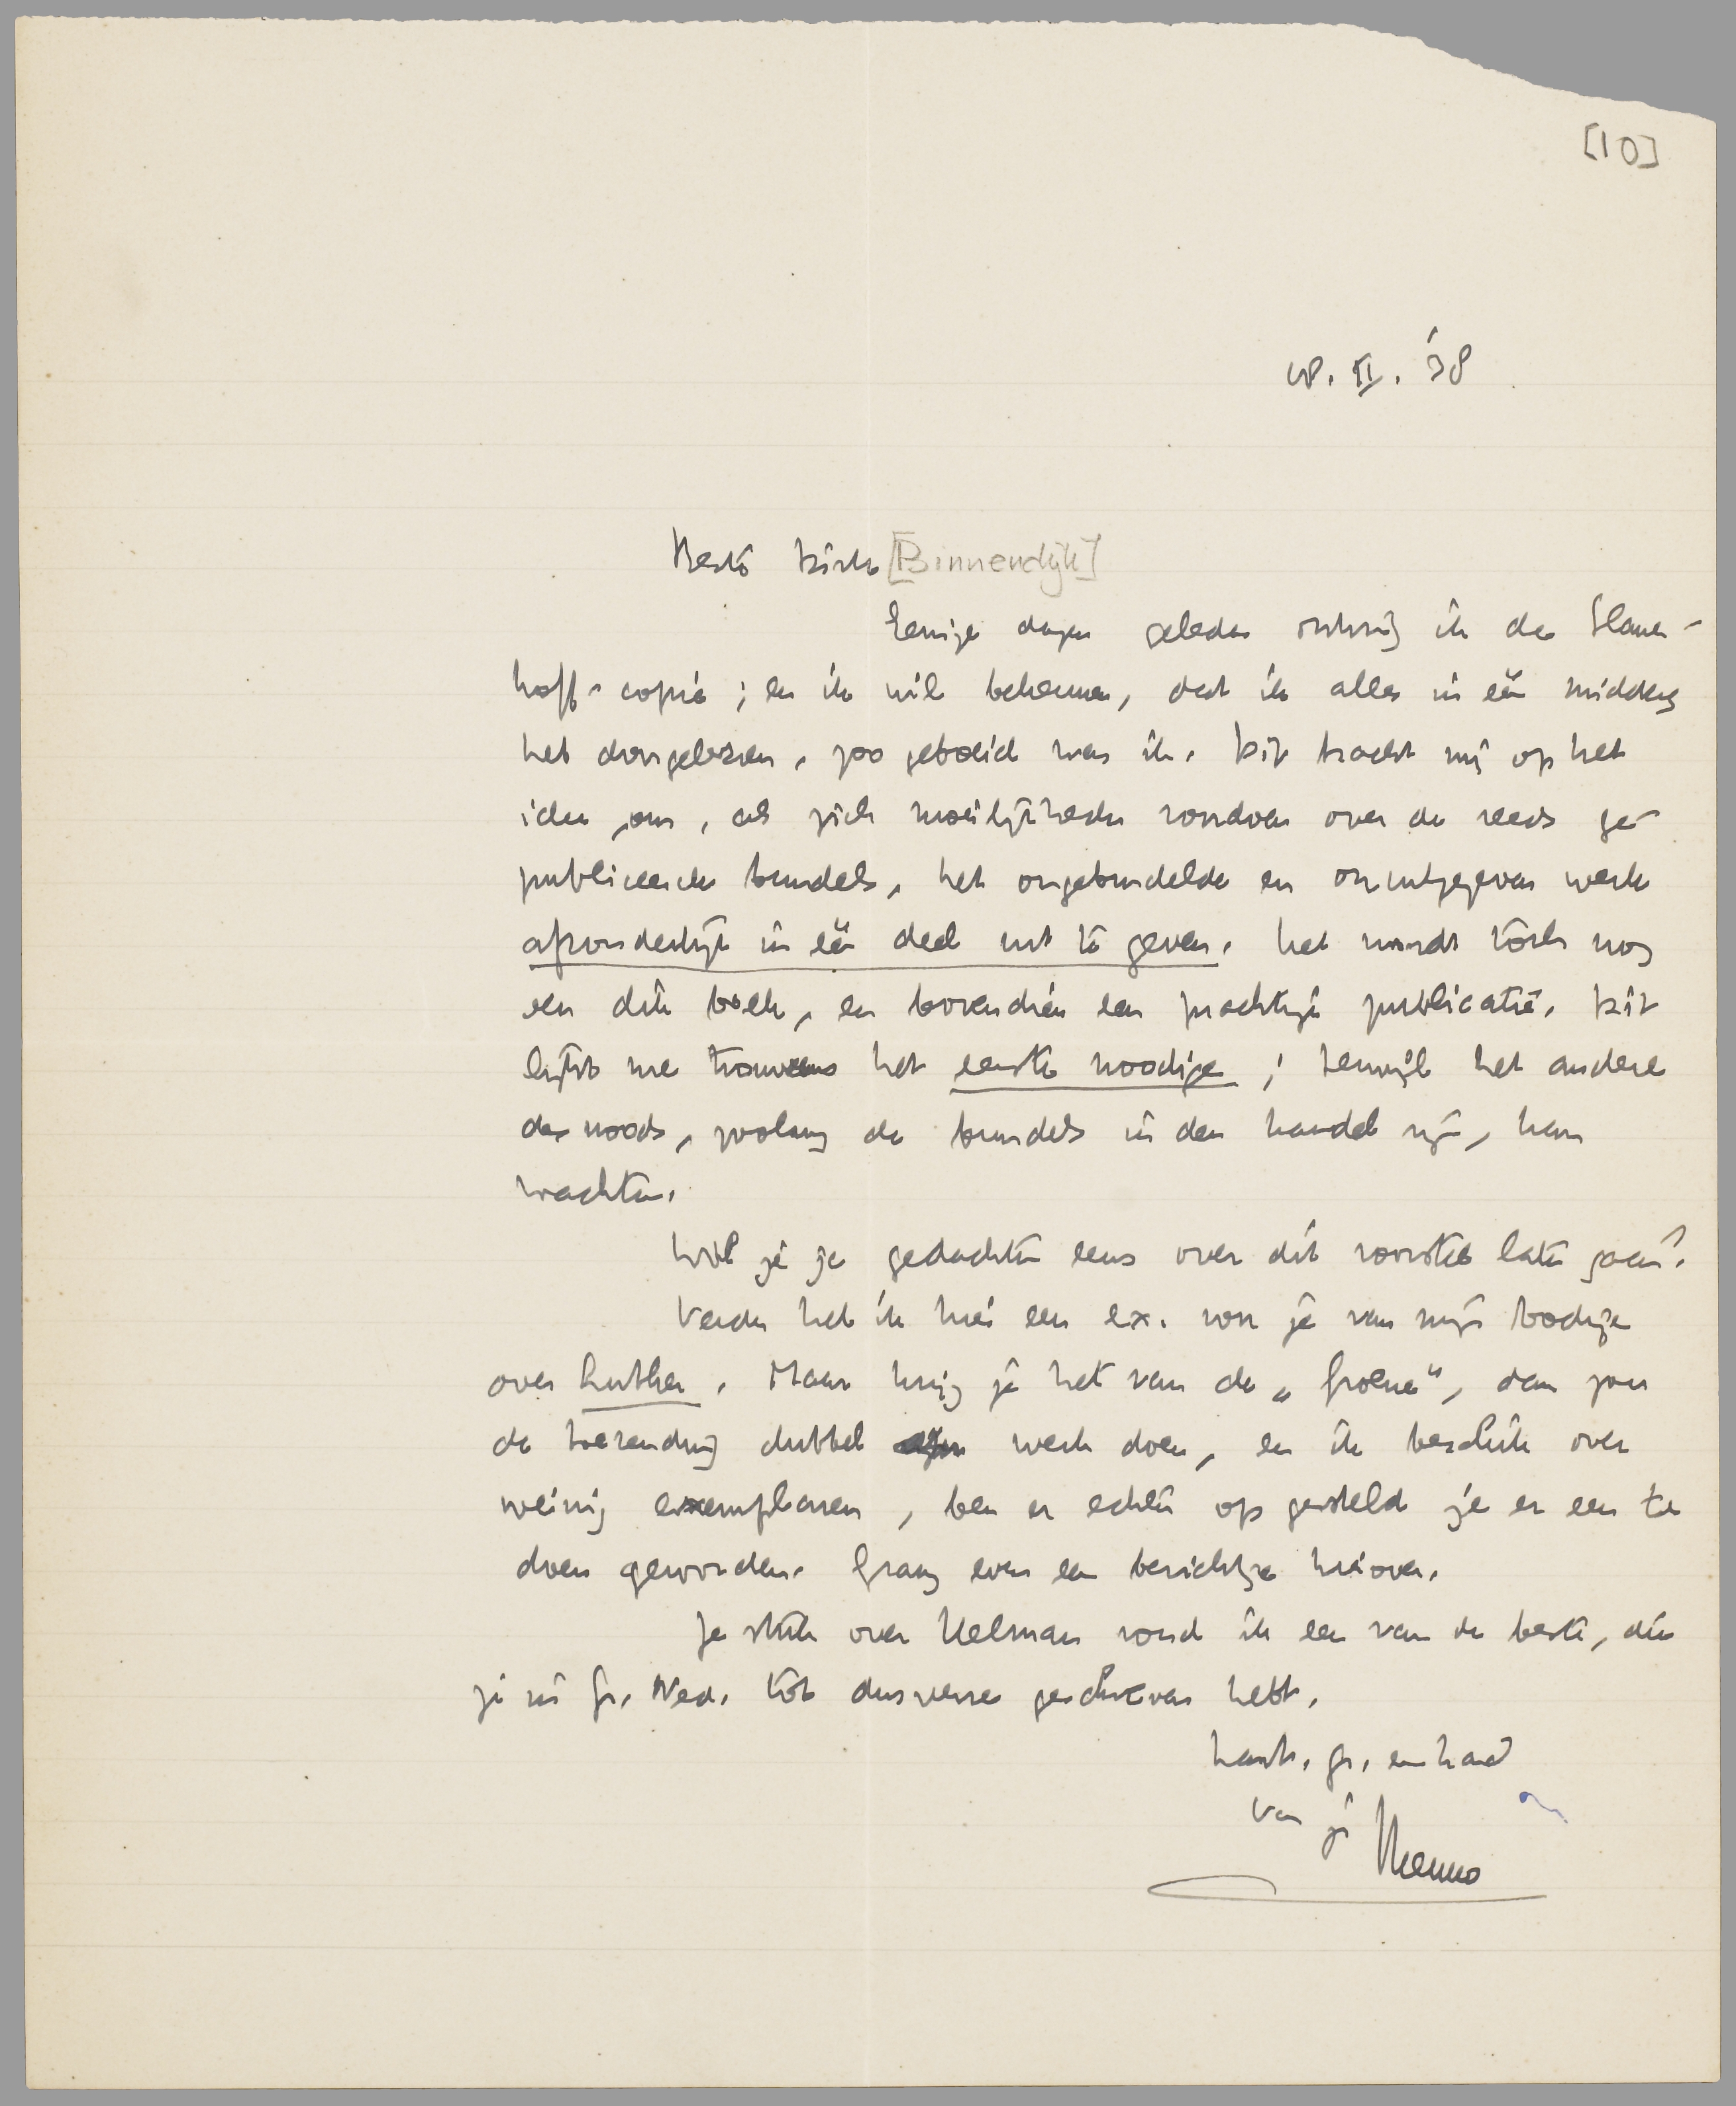 [10]
18. II. '38
Beste Dick [Binnendijk]
Eenige dagen geleden ontving ik de Slauer-
hoff-copie; en ik wil bekennen, dat ik alles in één middag
heb doorgelezen, zoo geboeid was ik. Dit bracht mij op het
idee, om, als zich moeilijkheden voordoen over de reeds ge-
publiceerde bundels, het ongebundelde en onuitgegeven werk
afzonderlijk in één deel uit te geven. Het wordt tòch nog
een dik boek, en bovendien een prachtige publicatie. Dit
lijkt me trouwens het eerste noodige; terwijl het andere
des noods, zoolang de bundels in den handel zijn, kan
wachten.
Wil je je gedachten eens over dit voorstel laten gaan?
Verder heb ik hier een ex. voor je van mijn boekje
over Luther. Maar krijg je het van de „Groene", dan zou
de toezending dubbel werk doen, en ik beschik over
weinig exemplaren, ben er echter op gesteld je er een te
doen geworden. Graag even een berichtje hierover.
Je stuk over Helman vond ik een van de beste, die
je in Gr. Ned. tot dusverre geschreven hebt.
Hart. gr. en hand
van je Menno